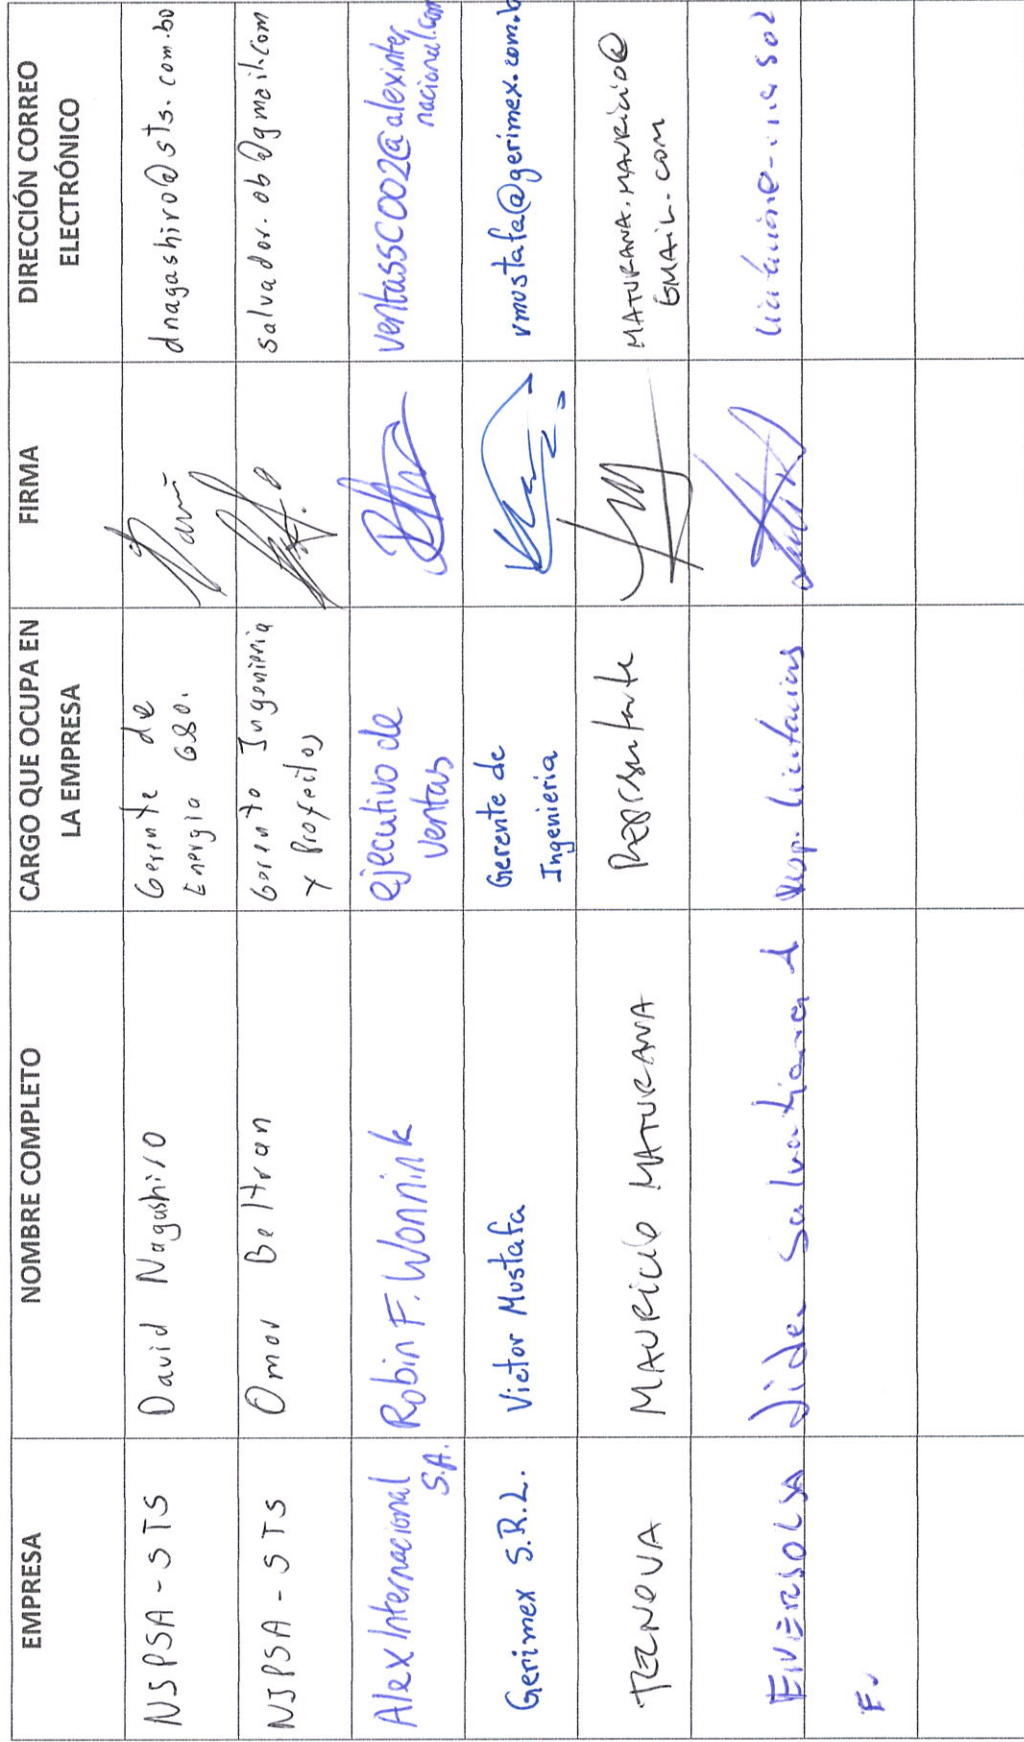 EMPRESA
NOMBRE COMPLETO
CARGO QUE OCUPA EN
LA EMPRESA
FIRMA
DIRECCIÓN CORREO
ELECTRÓNICO
NSPSA - STS
David Nagashiro
Gerente de
Energia
dnagashiro@sts.com.bo
NSPSA - STS
Omar Beltran
Gerente Ingenieria
y Proyectos
salvador.ob@gmail.com
Alex Internacional
S.A.
Robin F. Wonnink
ejecutivo de
ventas
ventasSC002@alexinter
nacional.com
Gerimex S.R.L.
Victor Mustafa
Gerente de
Ingenieria
vmustafa@gerimex.com.b
TECNOVA
MAURICIO MATURANA
Representante
MATURANA.MAURICIO@
GMAIL.COM
Salvatierra
Resp. licitacions